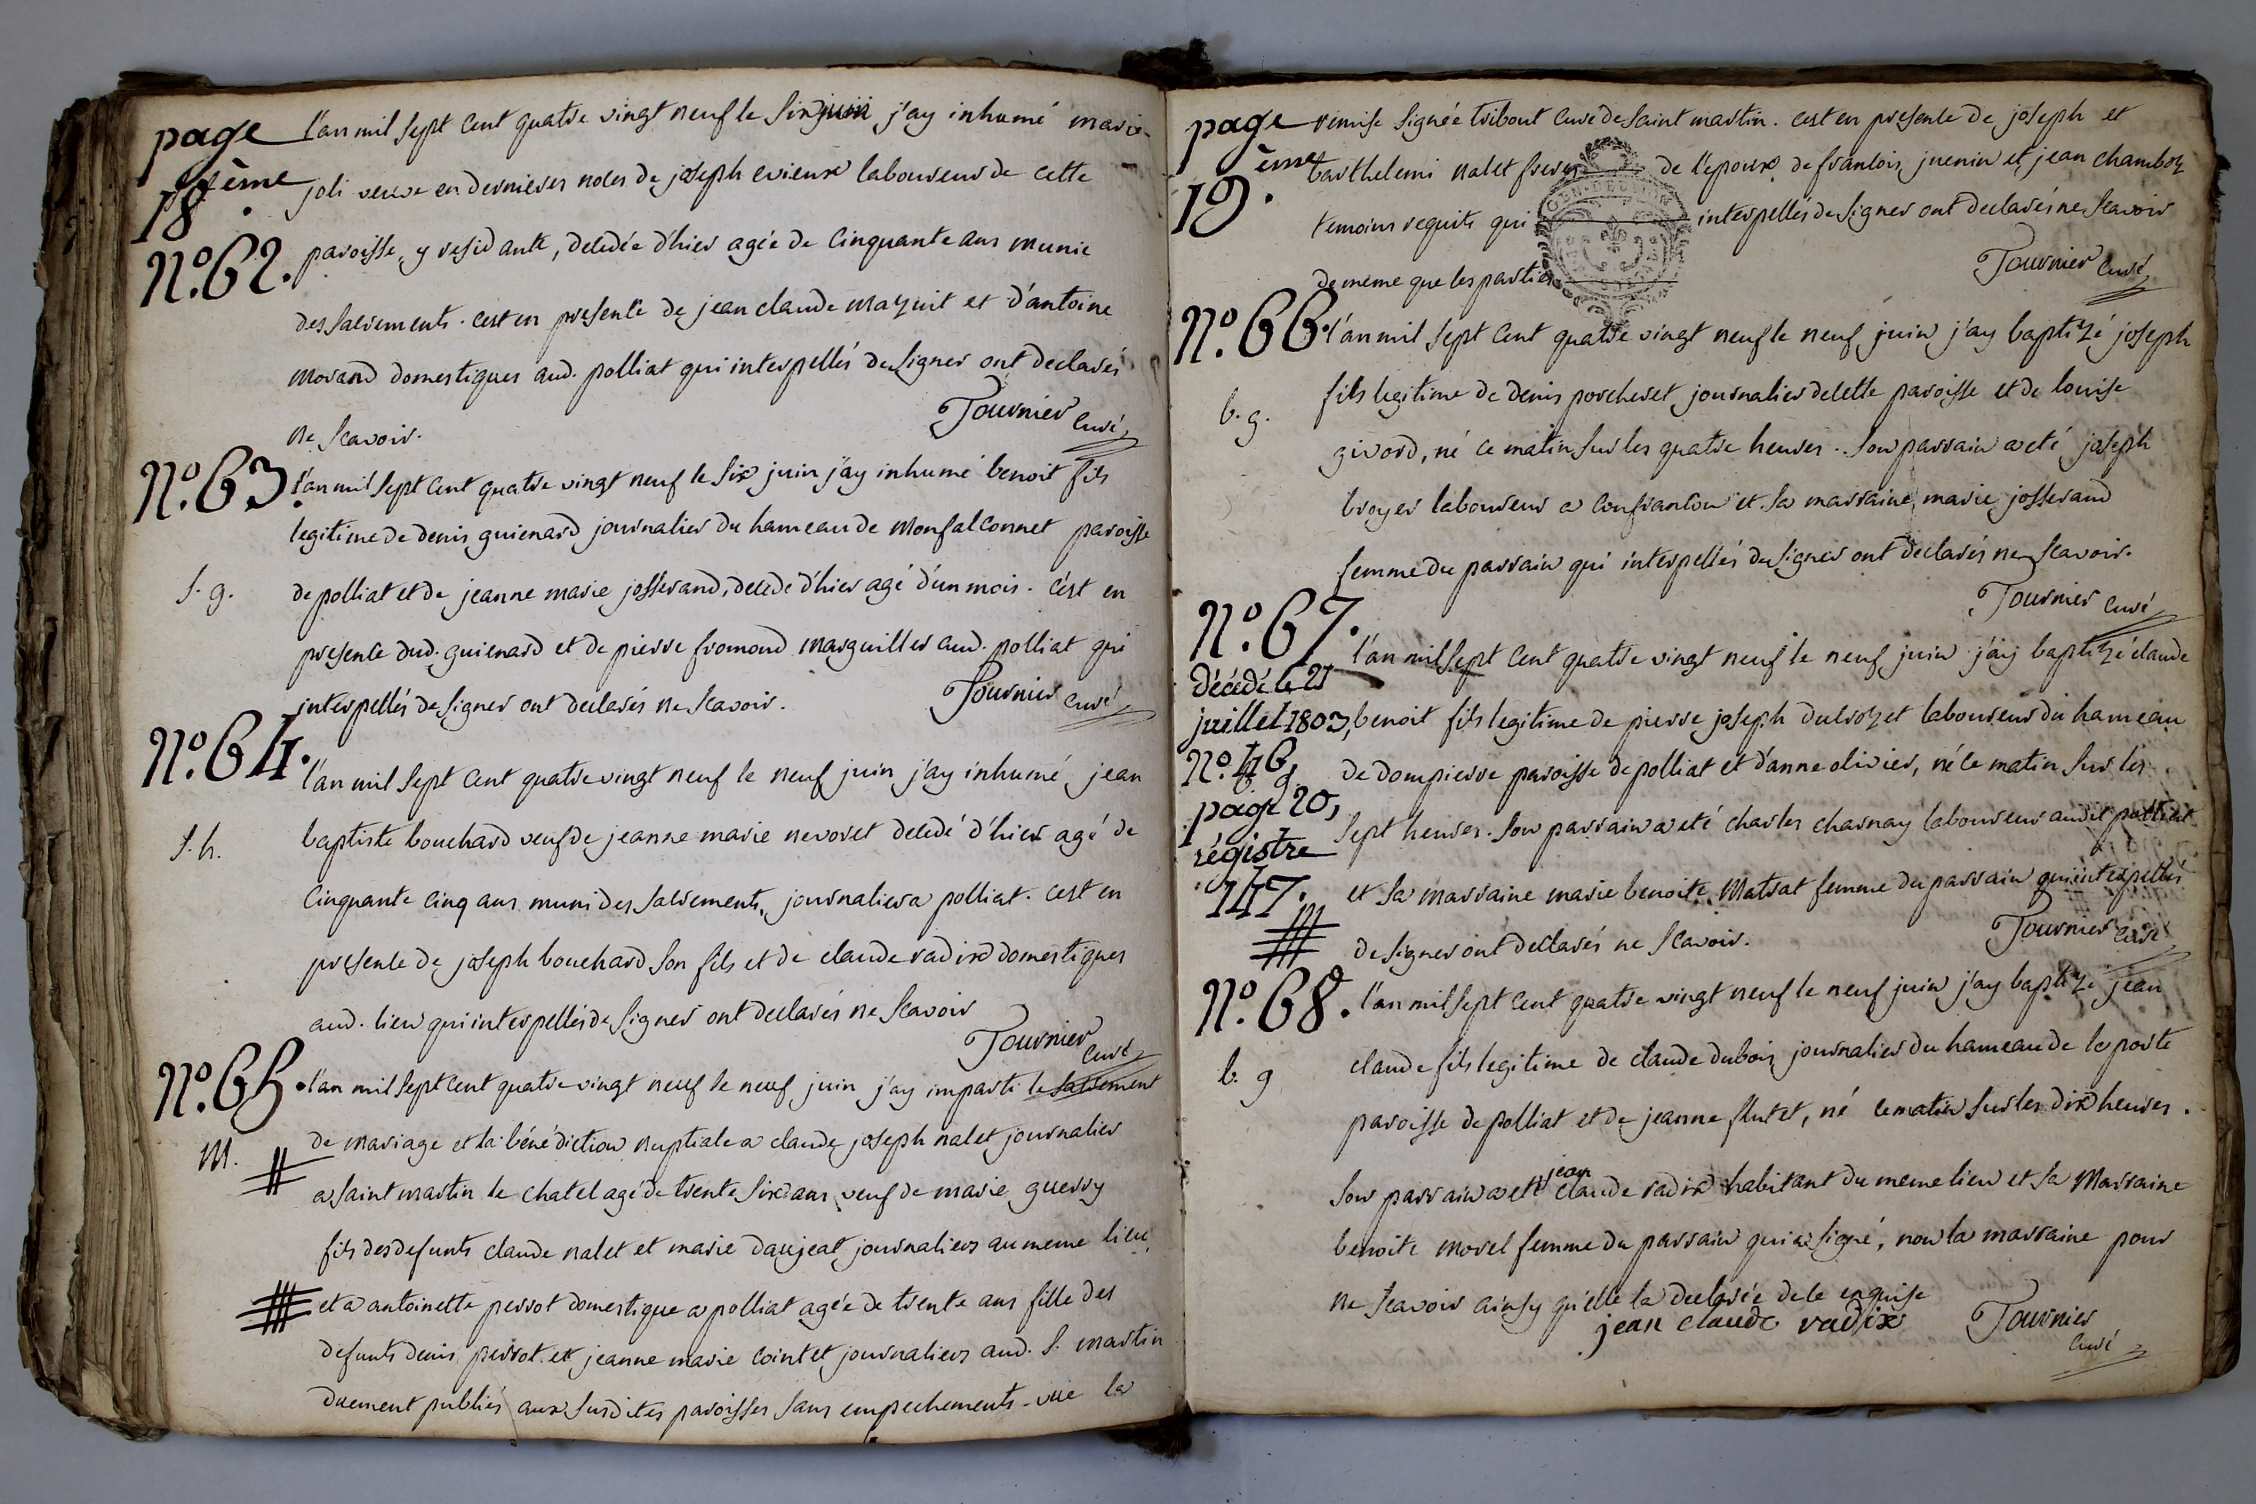 page 18ème
N.º 62.
l'an mil sept cent quatre vingt neuf le six juin j'ay inhumé marie
joli veuve en dernieres noces de joseph evieux laboureur de cette
paroisse, y residante, decedée d'hier agée de cinquante ans munie
des sacrements. c'est en presence de jean claude mazuit et d'antoine
morand domestiques aud. polliat qui interpellés de signer ont declarés
ne scavoir.
Tournier curé
N.º 63.
l'an mil sept cent quatre vingt neuf le six juin j'ay inhumé benoit fils
legitime de denis guienard journalier du hameau de monfalconnet paroisse
S. g.
de polliat et de jeanne marie josserand, decedé d'hier agé d'un mois. c'est en
presence dud. guienard et de pierre fromond marguillier aud. polliat qui
interpellés de signer ont declarés ne scavoir.
Tournier curé
N.º 64.
l'an mil sept cent quatre vingt neuf le neuf juin j'ay inhumé jean
S. h.
baptiste bouchard veuf de jeanne marie nevoret decedé d'hier agé de
cinquante cinq ans muni des sacrements, journalier a polliat. c'est en
presence de joseph bouchard son fils et de claude radix domestiques
aud. lieu qui interpellés de signer ont declarés ne scavoir
Tournier curé
N.º 65.
l'an mil sept cent quatre vingt neuf le neuf juin j'ay imparti le sacrement
m.
de mariage et la bénédiction nuptiale a claude joseph nalet journalier
a saint martin le chatel agé de trente six ans, veuf de marie guerry
fils des defunts claude nalet et marie daujeat journaliers au meme lieu,
et a antoinette perrot domestique a polliat agée de trente ans fille des
defunts denis perrot et jeanne marie cointet journaliers aud. S. martin
duement publiés aux susdites paroisses sans empechements. vue la
page 19.ème
remise signée tribout curé de saint martin. c'est en presence de joseph et
barthelemi nalet freres de l'epoux, de francois juenin et jean chamboz
temoins requits qui interpellés de signer ont declarés ne scavoir
de meme que les parties
Tournier curé
GEN. DE DIJON
N.º 66.
l'an mil sept cent quatre vingt neuf le neuf juin j'ay baptizé joseph
b. g.
fils legitime de denis porcheret journalier de cette paroisse et de louise
givord, né ce matin sur les quatre heures. son parrain a eté joseph
broyer laboureur a confrancon et sa marraine marie josserand
femme du parrain qui interpellés de signer ont declarés ne scavoir.
Tournier curé
N.º 67.
décédé le 21
juillet 1803,
N.º 46,
page 20,
régistre
147.
b. g.
l'an mil sept cent quatre vingt neuf le neuf juin j'ay baptizé claude
benoit fils legitime de pierre joseph ducrozet laboureur du hameau
de dompierre paroisse de polliat et d'anne olivier, né ce matin sur les
sept heures. son parrain a eté charles charnay laboureur audit polliat
et sa marraine marie benoite matrat femme du parrain qui interpellés
de signer ont declarés ne scavoir.
Tournier curé
N.º 68.
l'an mil sept cent quatre vingt neuf le neuf juin j'ay baptizé jean
b. g
claude fils legitime de claude dubois journalier du hameau de la poste
paroisse de polliat et de jeanne flutet, né ce matin sur les dix heures.
son parrain a eté jean claude radix habitant du meme lieu et sa marraine
benoite morel femme du parrain qui a signé, non la marraine pour
ne scavoir ainsy qu'elle la declarée de ce enquise
jean claude radix
Tournier
curé